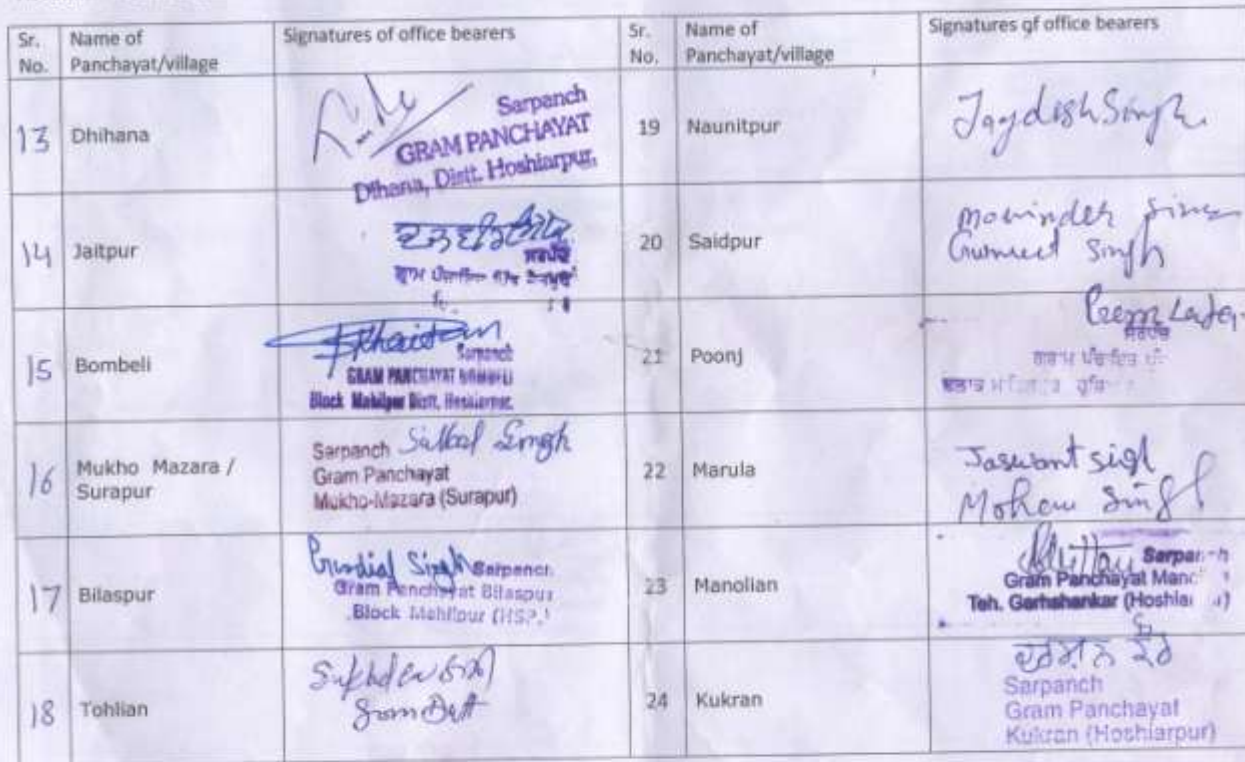 Sr. No. Name of Panchayat/village Signatures of office bearers Sr. No. Name of Panchayat/village Signatures of office bearers
13 Dhihana
Sarpanch
GRAM PANCHAYAT
Dihana, Distt. Hoshiarpur.
19 Naunitpur
Jagdish Singh
14 Jaitpur
ਸਰਪੰਚ
20 Saidpur
Gurmeet Singh
15 Bombeli
Sarpanch
GRAM PANCHAYAT BOMBELI
Block Mahilpur Distt. Hoshiarpur.
21 Poonj
ਸਰਪੰਚ
16 Mukho Mazara / Surapur
Sarpanch
Singh
Gram Panchayat
Mukho-Mazara (Surapur)
22 Marula
Jaswant
Mohan Singh
17 Bilaspur
Gurdial Singh Sarpanch
Gram Panchayat Bilaspur
Block Mahilpur (HSP.)
23 Manolian
Sarpanch
Gram Panchayat
Teh. Garhshankar
18 Tohlian
24 Kukran
ਕੌਰ
Sarpanch
Gram Panchayat
Kukran (Hoshiarpur)